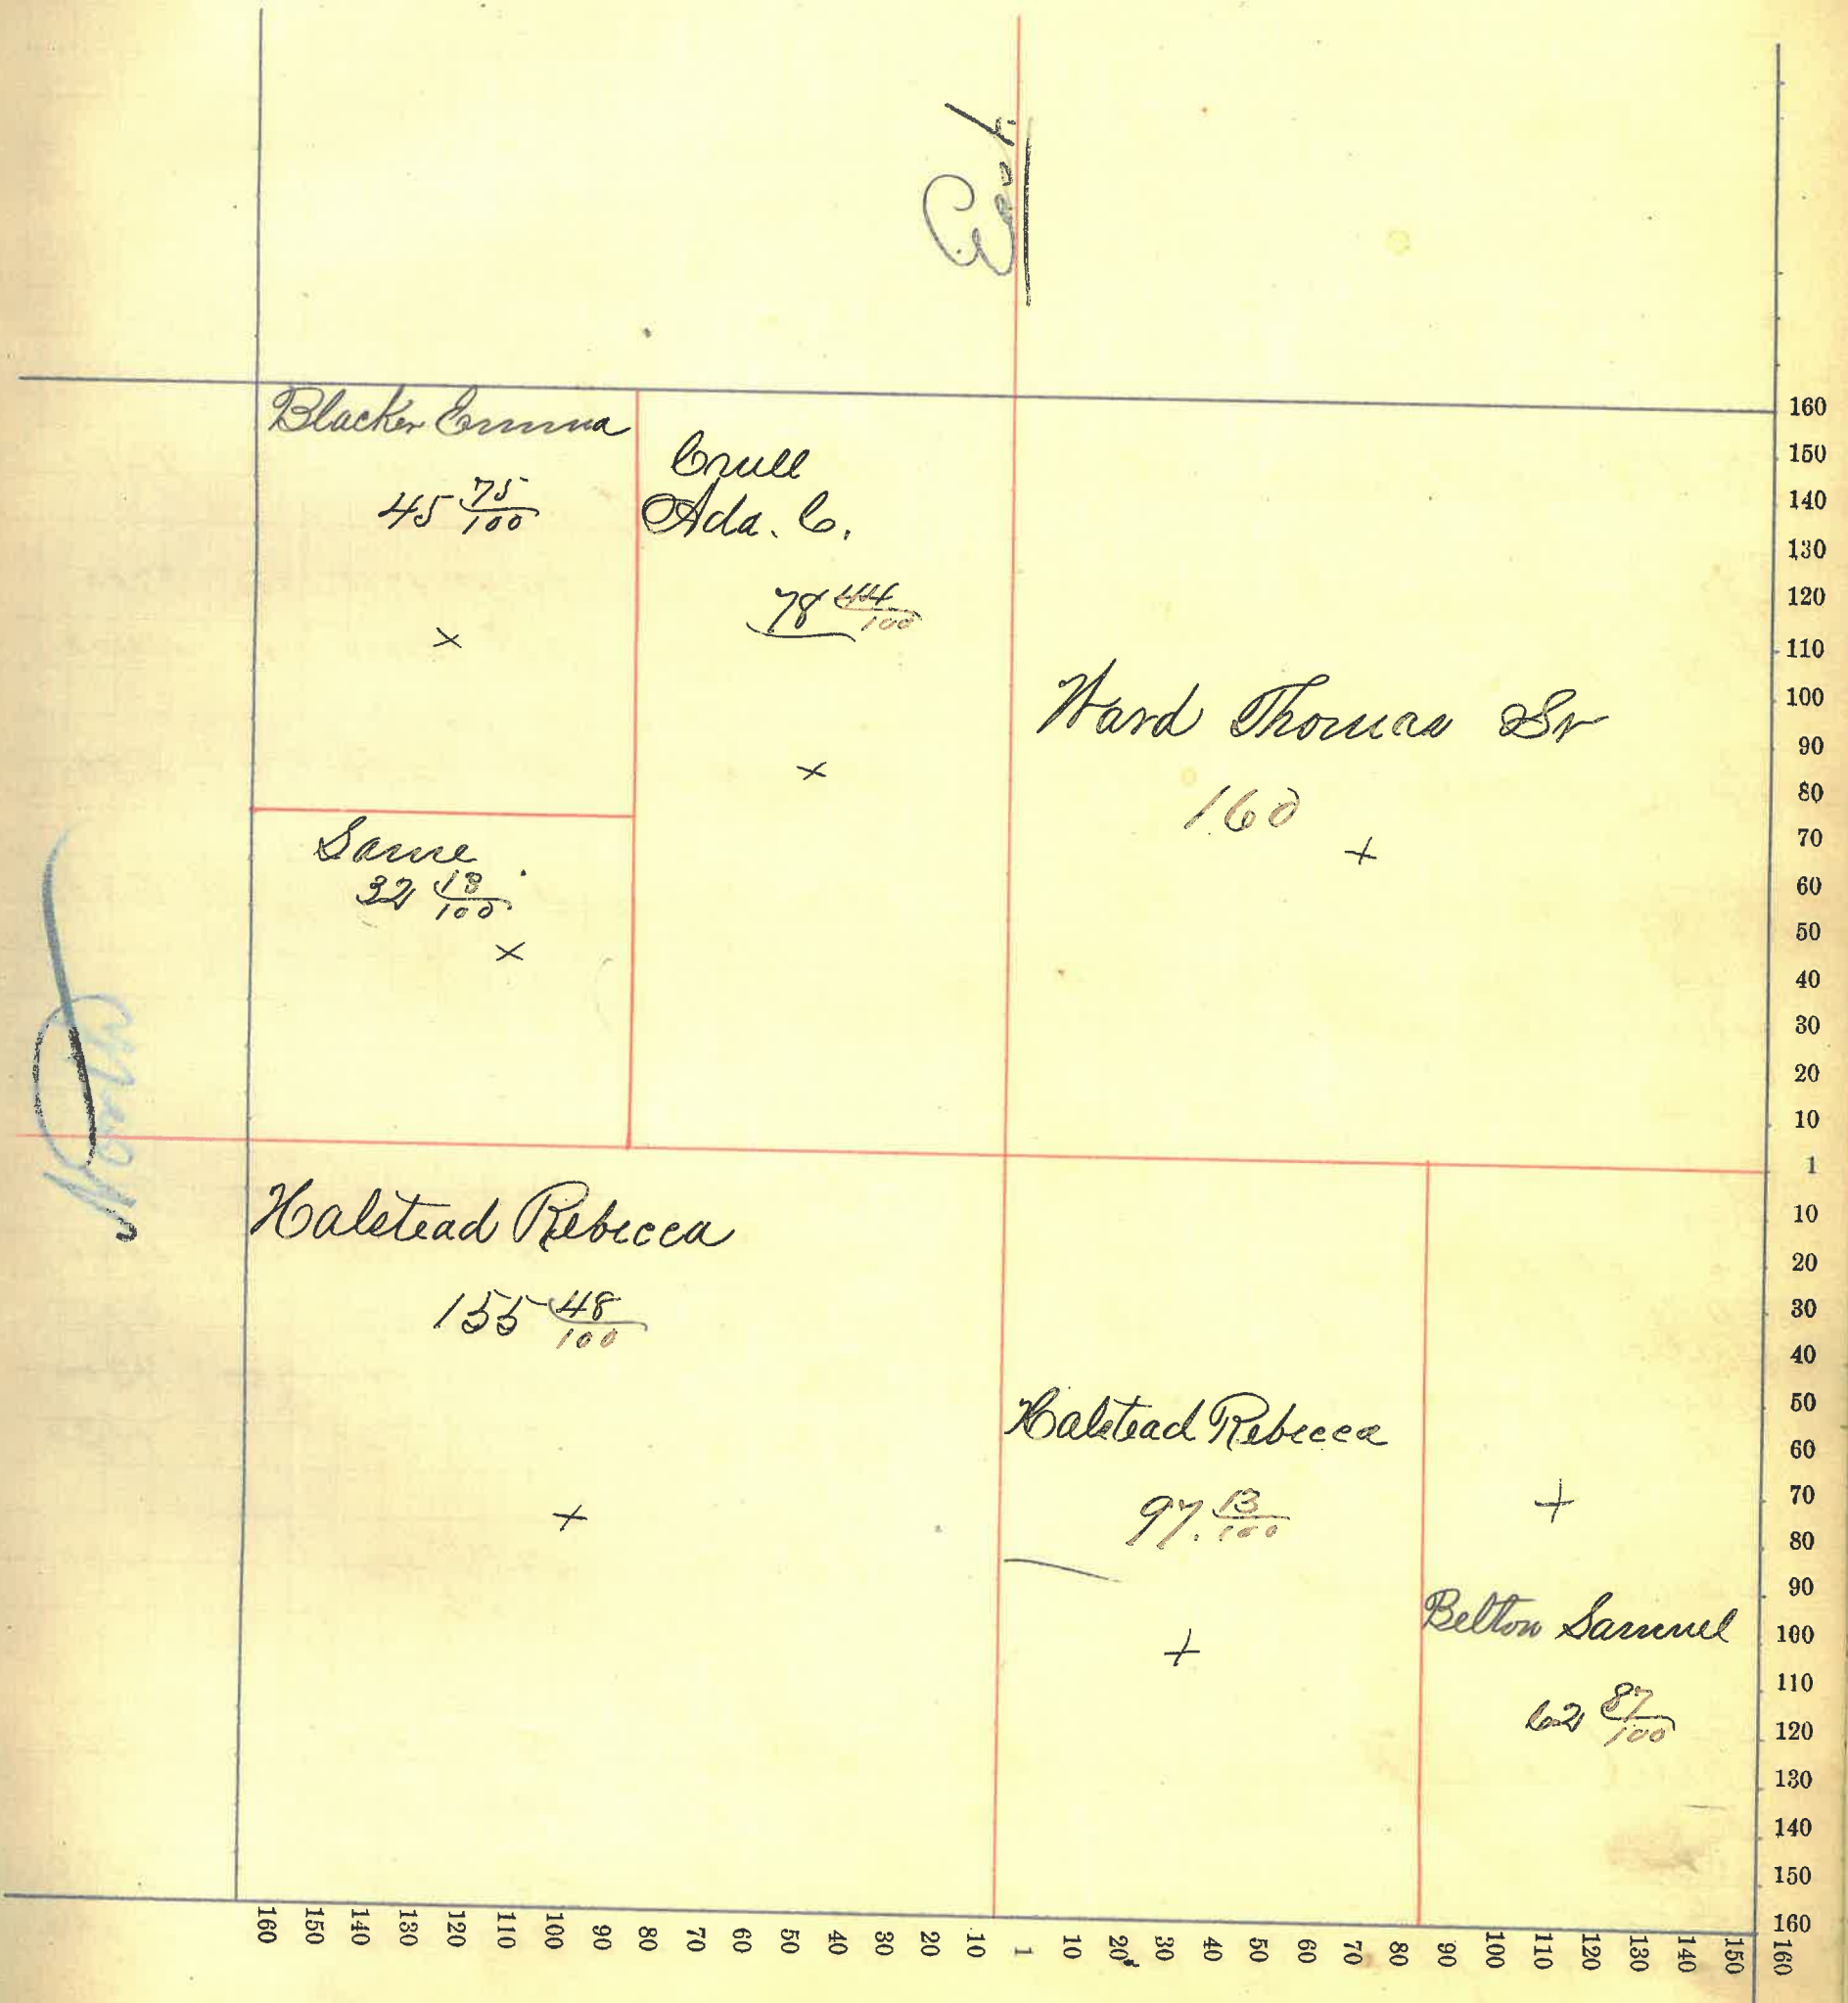 East
North
Blacker Emma
45 75/100
Crull
Ada. C.
78 44/100
Same
32 13/100
Ward Thomas Sr
160
Halstead Rebecca
155 48/100
Halstead Rebecca
97. 13/100
Belton Samuel
62 87/100
160
150
140
130
120
110
100
90
80
70
60
50
40
30
20
10
1
10
20
30
40
50
60
70
80
90
100
110
120
130
140
150
160
160 150 140 130 120 110 100 90 80 70 60 50 40 30 20 10 1 10 20 30 40 50 60 70 80 90 100 110 120 130 140 150 160